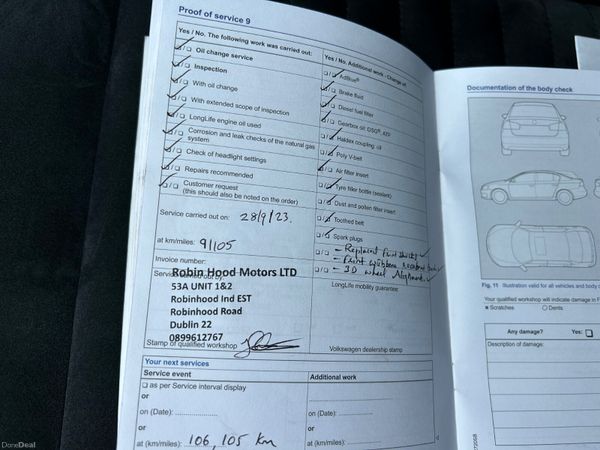 Proof of service 9
Yes / No. The following work was carried out:
Oil change service
Inspection
With oil change
With extended scope of inspection
LongLife engine oil used
Corrosion and leak checks of the natural gas
system
Check of headlight settings
Repairs recommended
Customer request
(this should also be noted on the order)
Service carried out on: 28/9/23.
at km/miles: 91105
Invoice number:
Robin Hood Motors LTD
53A UNIT 1&2
Robinhood Ind EST
Robinhood Road
Dublin 22
0899612767
Stamp of qualified workshop
Yes / No. Additional work - Change of
AdBlue®
Brake fluid
Diesel fuel filter
Gearbox oil: DSG®, 4ZY
Haldex coupling oil
Poly V-belt
Air filter insert
Tyre filler bottle (sealant)
Dust and pollen filter insert
Toothed belt
Spark plugs
- Replaced front shocks
- 3D wheel Alignment
LongLife mobility guarantee
Volkswagen dealership stamp
Your next services
Service event
Additional work
as per Service interval display
or
on (Date):
or
at (km/miles): 106,105 Km
on (Date):
or
at (km/miles):
Documentation of the body check
Fig. 11 Illustration valid for all vehicles and body
Your qualified workshop will indicate damage in F
Scratches
Dents
Any damage?
Yes:
Description of damage:
DoneDeal